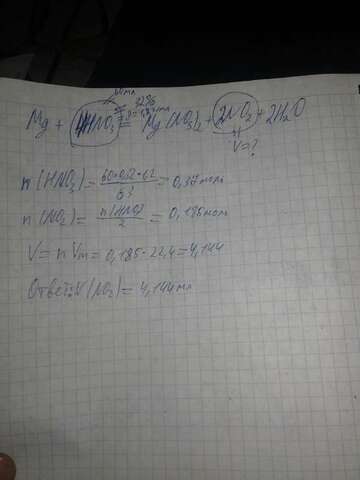 60 мл
32%
Mg + 4HNO₃ = Mg(NO₃)₂ + 2NO₂ + 2H₂O
V=?
n(HNO₃) = = 0,37 моль
n(NO₂) = n(HNO₃)/2 = 0,185 моль
V = n Vm = 0,185 · 22,4 = 4,144
Ответ: V(NO₂) = 4,144 мл